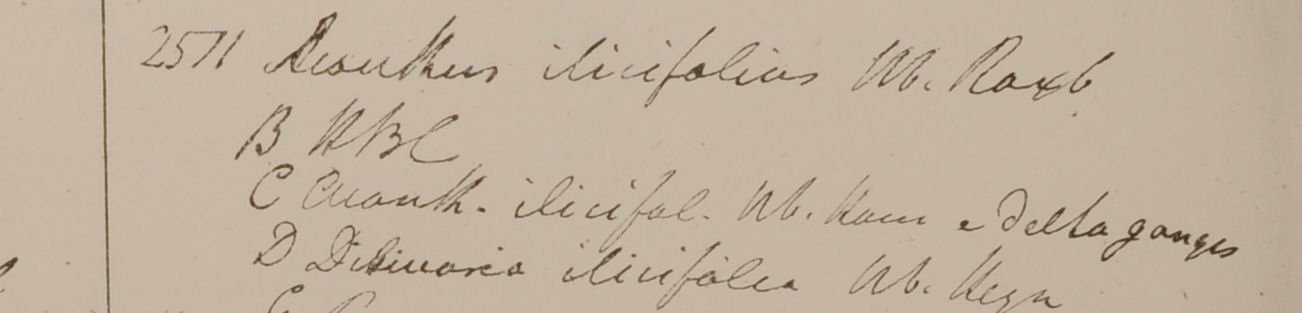 2571 Acanthus ilicifolius Hb. Roxb
B HBC
C Acanth. ilicifol. Hb. Ham e Delta ganges
D Dilivaria ilicifolia Hb. Heyn